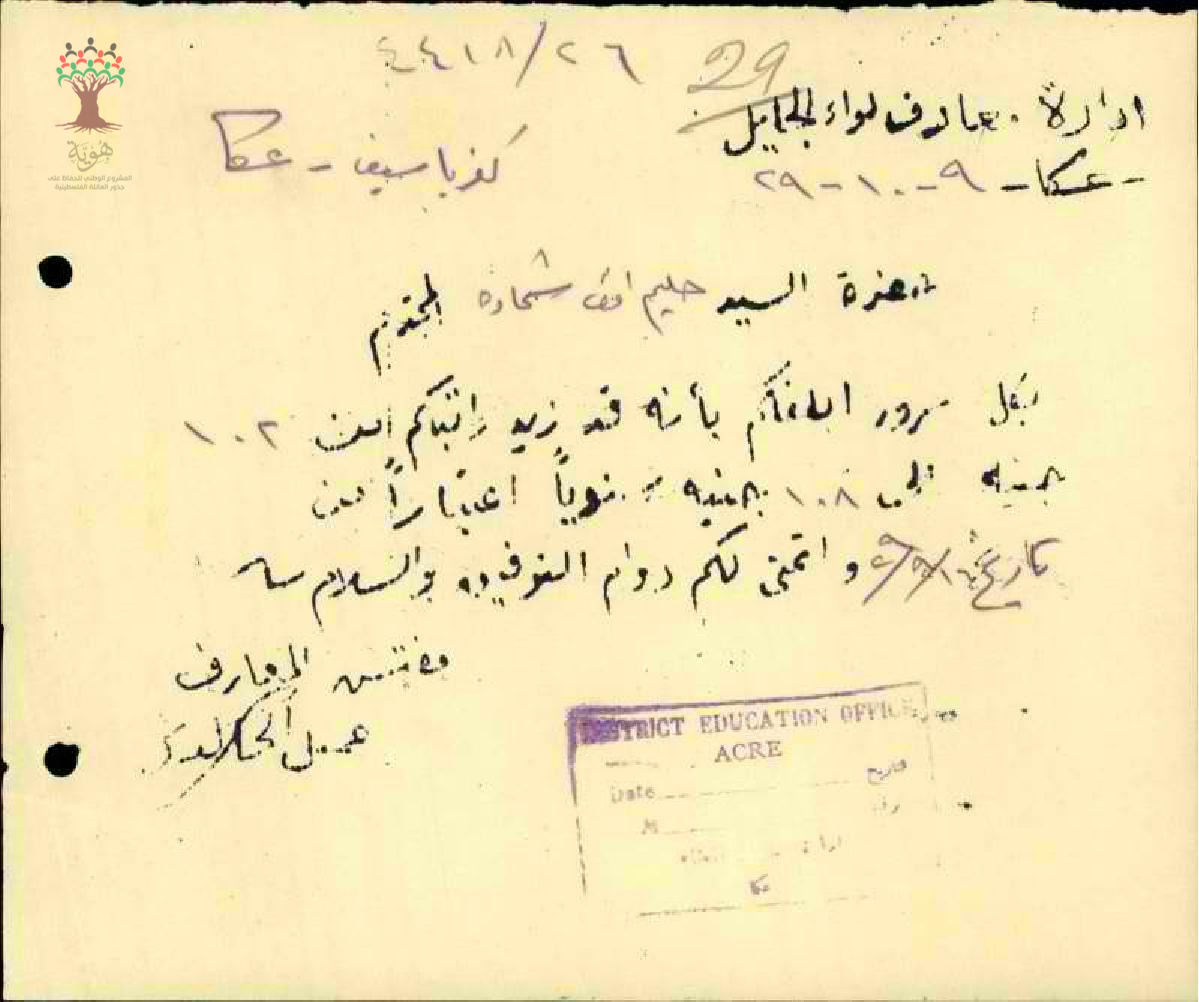 هوية
المشروع الوطني للحفاظ على
جذور العائلة الفلسطينية
٤٤١٨/٢٦
29
ادارة معارف لواء الجليل
كفر ياسيف - عكا
- عكا - ٩-١٠-٢٩
حضرة السيد حليم افندي شحادة المحترم
بكل سرور ابلغكم بأنه قد زيد راتبكم من ١٠٢
جنيه الى ١٠٨ جنيه سنوياً اعتباراً من
تاريخ و اتمنى لكم دوام التوفيق والسلام
مفتش المعارف
DISTRICT EDUCATION OFFICE
ACRE
Date تاريخ
عكا